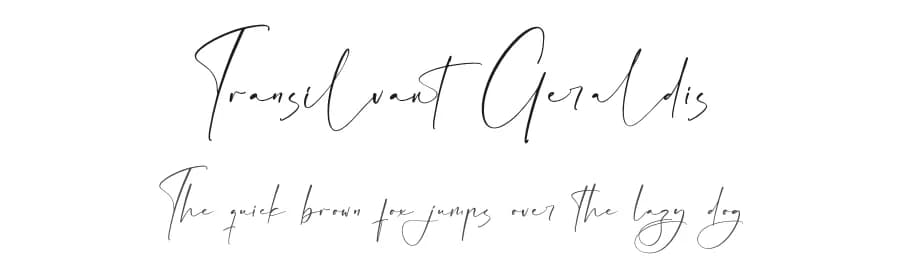 Transilvant Geraldis
The quick brown fox jumps over the lazy dog